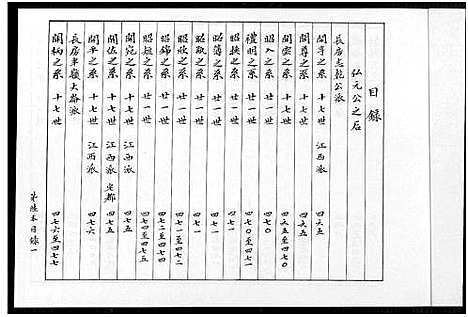 目錄
弘元公之后
長房志乾公派
開亨之系 十七世 江西派 四六五
開尊之系 十七世 四六五
開宻之系 十七世 四六五至四七〇
昭入之系 廿一世 四七〇
禮明之系 廿一世 四七〇至四七一
昭換之系 廿一世 四七一
昭蒲之系 廿一世 四七一
昭 之系 廿一世 四七一
昭欣之系 廿一世 四七一至四七二
昭錦之系 廿一世 四七二至四七四
昭短之系 廿一世 四七四至四七五
開宛之系 十七世 江西派 四七五
開佐之系 十七世 江西派 定都 四七五
開平之系 十七世 江西派 四七六
長房半嶺大
開柄之系 十七世 四七六至四七七
第陸本目錄一